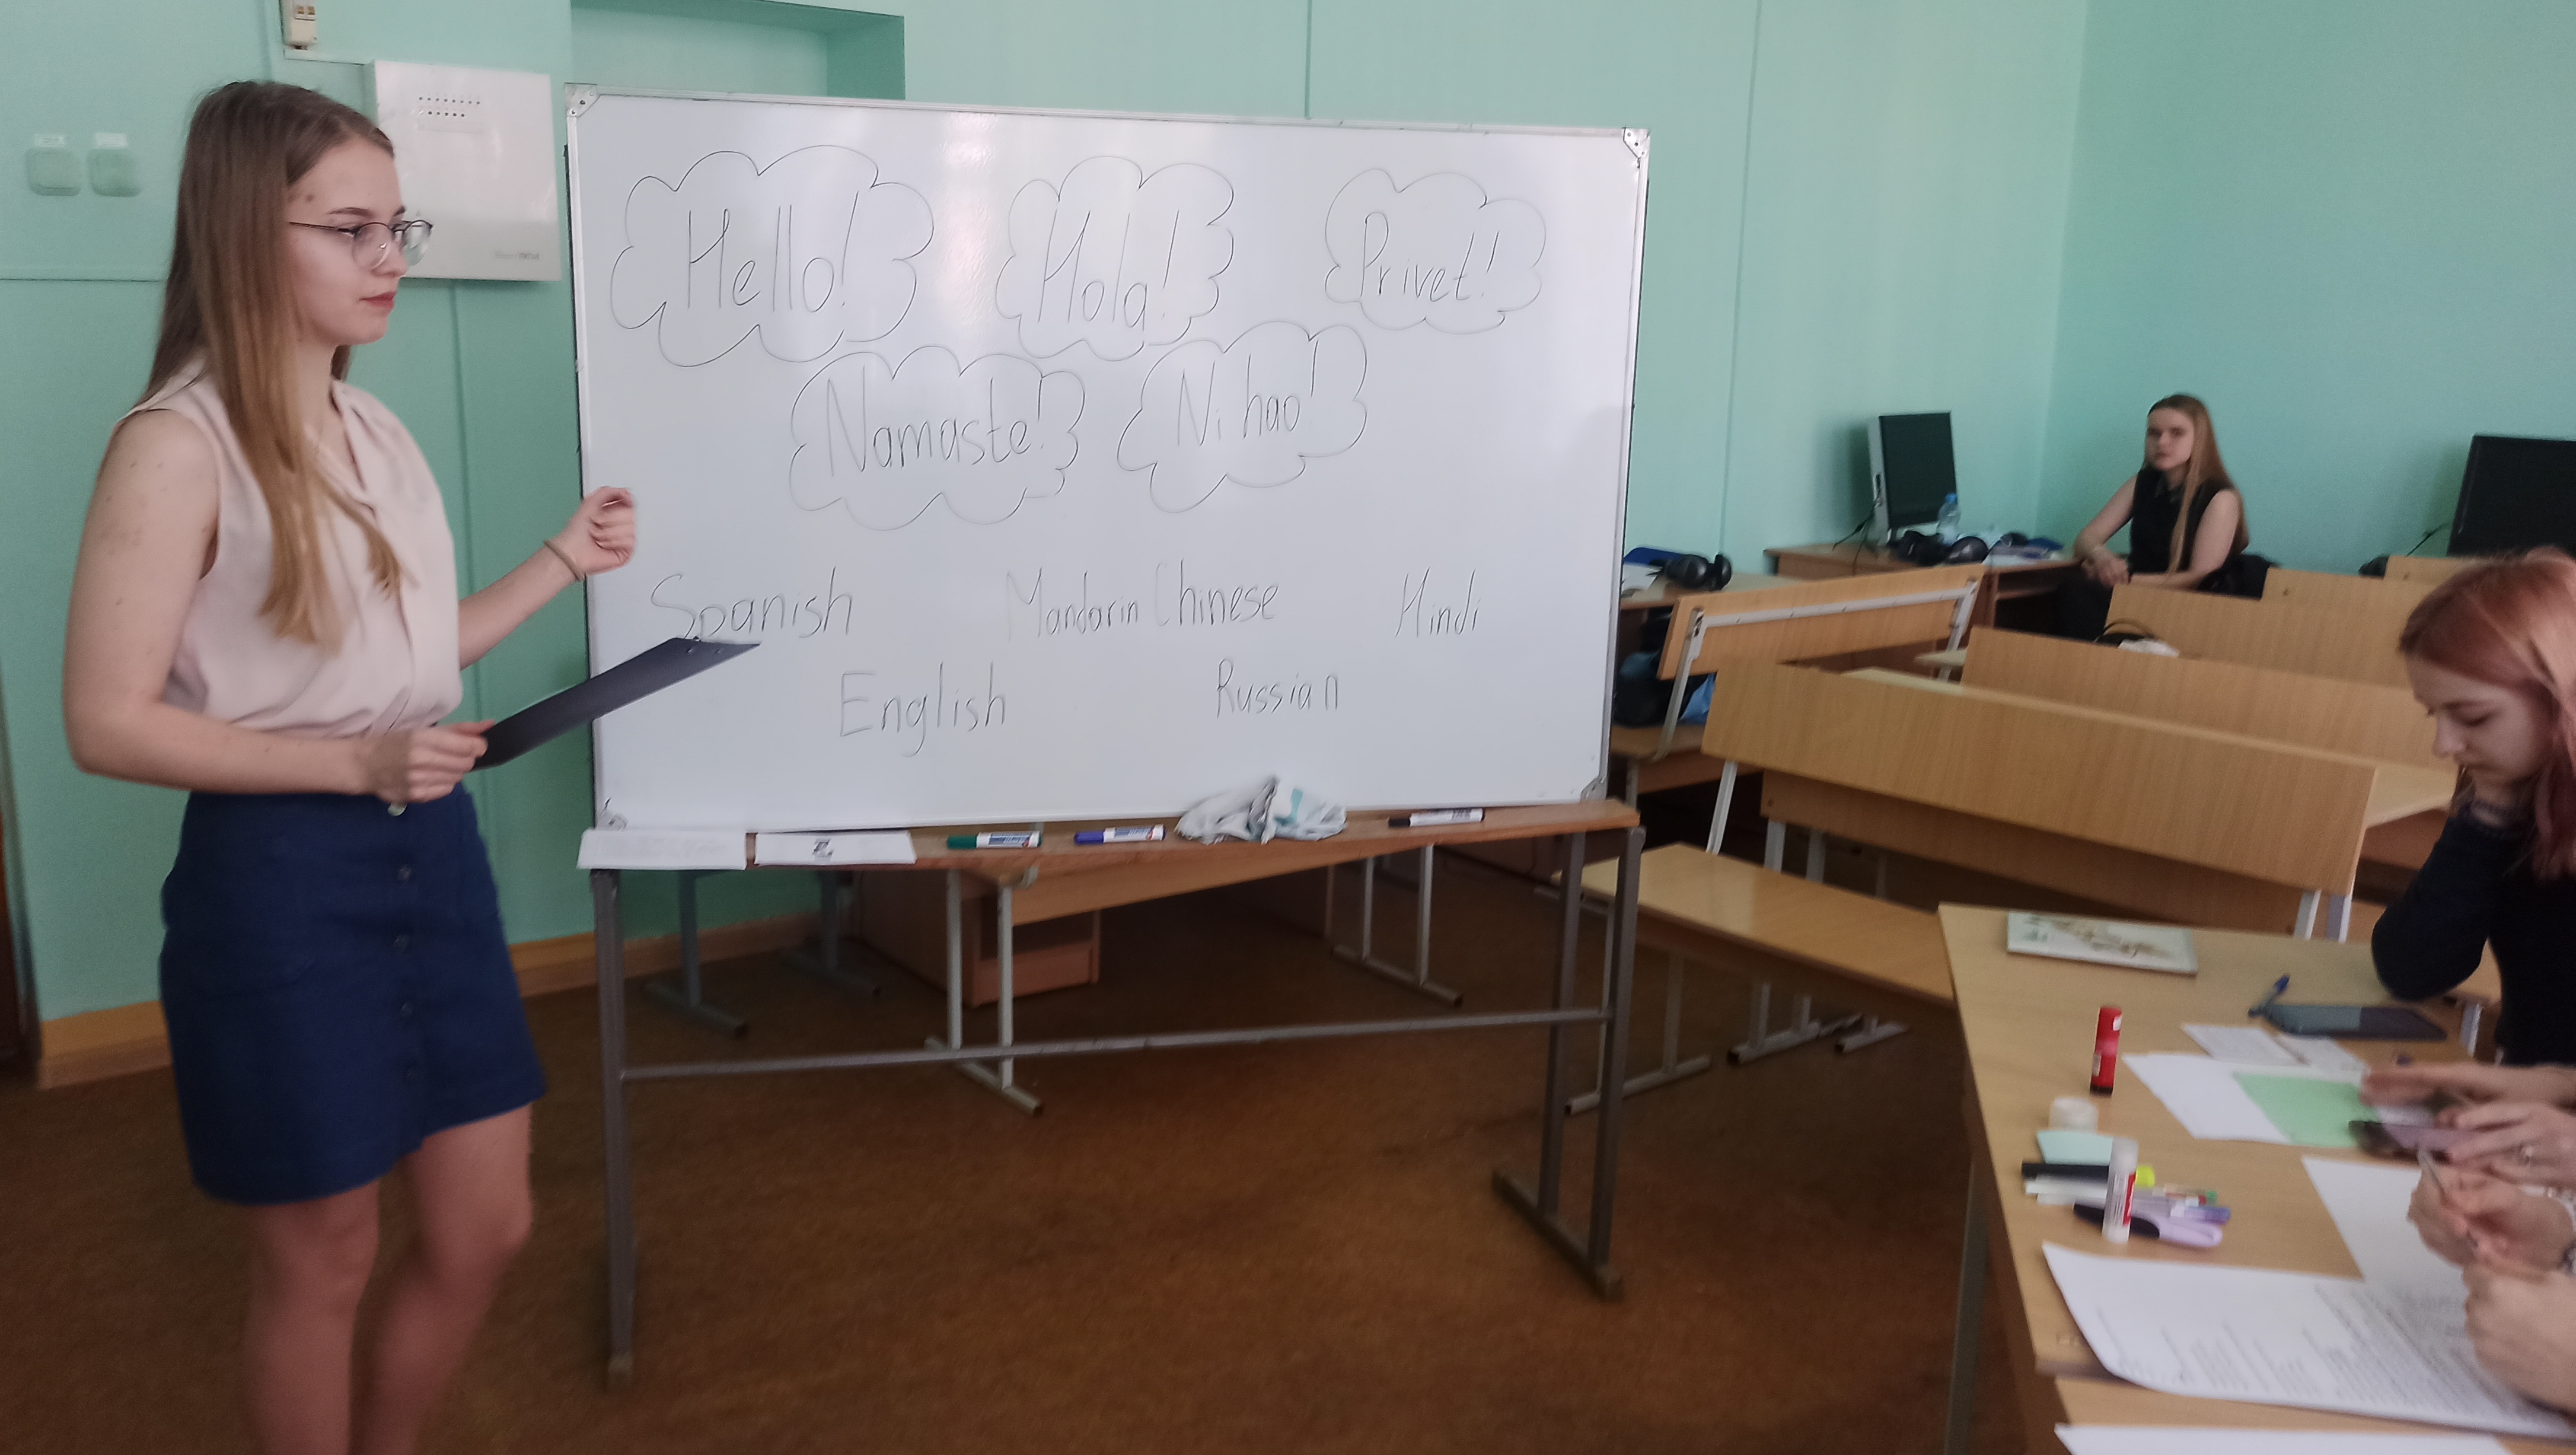 Hello! Hola! Privet!
Namaste! Ni hao!
Spanish Mandarin Chinese Hindi
English Russian